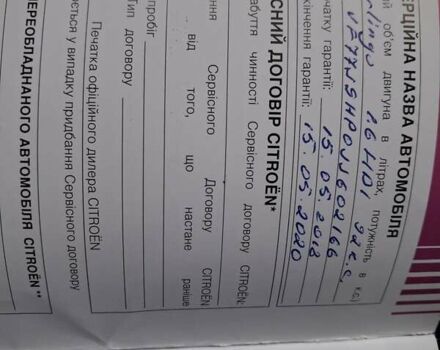 ЕРЦІЙНА НАЗВА АВТОМОБІЛЯ
ий об'єм двигуна в літрах, потужність в к.с.)
rlingo 1.6 HDI 92 к.с.
VF77N9HP0
очатку гарантії: 15.05.2018
кінчення гарантії: 15.05.2020
СНИЙ ДОГОВІР CITROËN*
абуття чинності Сервісного договору CITROËN:
ення Сервісного Договору CITROËN
від того, що настане раніше
пробіг
Тип договору
Печатка офіційного дилера CITROËN
ється у випадку придбання Сервісного договору
ПЕРЕОБЛАДНАНОГО АВТОМОБІЛЯ CITROËN**